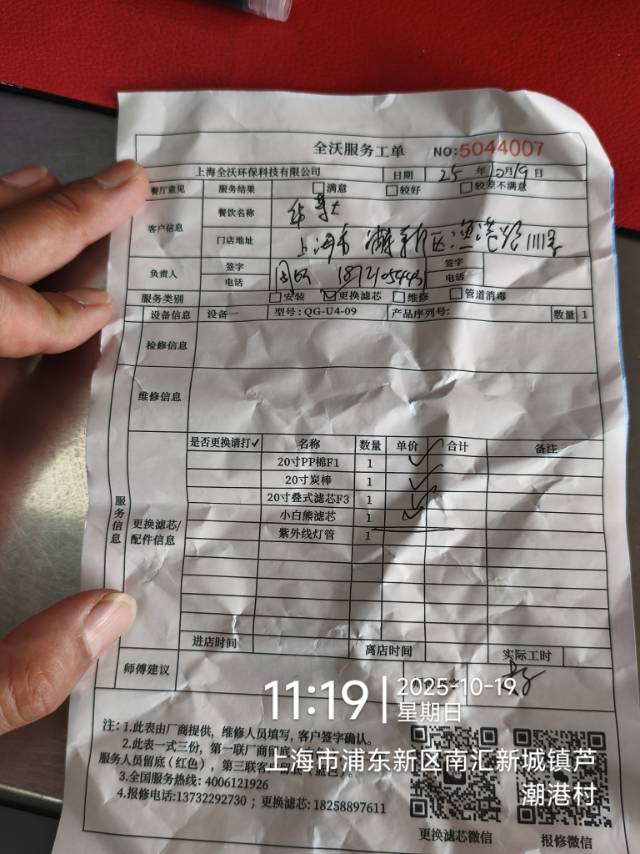 全沃服务工单 NO:5044007
上海全沃环保科技有限公司 日期 25 年 10月19日
餐厅意见 服务结果 满意 较好 较差不满意
客户信息 餐饮名称
门店地址 上海市浦东新区
负责人 签字 签字
电话 电话
服务类别 安装 更换滤芯 维修 管道消毒
设备信息 设备一 型号:QG-U4-09 产品序列号: 数量 1
检修信息
维修信息
服务信息
更换滤芯/配件信息
是否更换请打✓ 名称 数量 单价 合计 备注
20寸PP棉F1 1 ✓
20寸炭棒 1 ✓
20寸叠式滤芯F3 1 ✓
小白熊滤芯 1 ✓
紫外线灯管 1
进店时间 离店时间 实际工时
师傅建议
11:19 2025-10-19
星期日
上海市浦东新区南汇新城镇芦
潮港村
注:1.此表由厂商提供,维修人员填写,客户签字确认。
2.此表一式三份,第一联厂商留底
服务人员留底(红色),第三联客
3.全国服务热线:4006121926
4.报修电话:13732292730;更换滤芯:18258897611
更换滤芯微信 报修微信